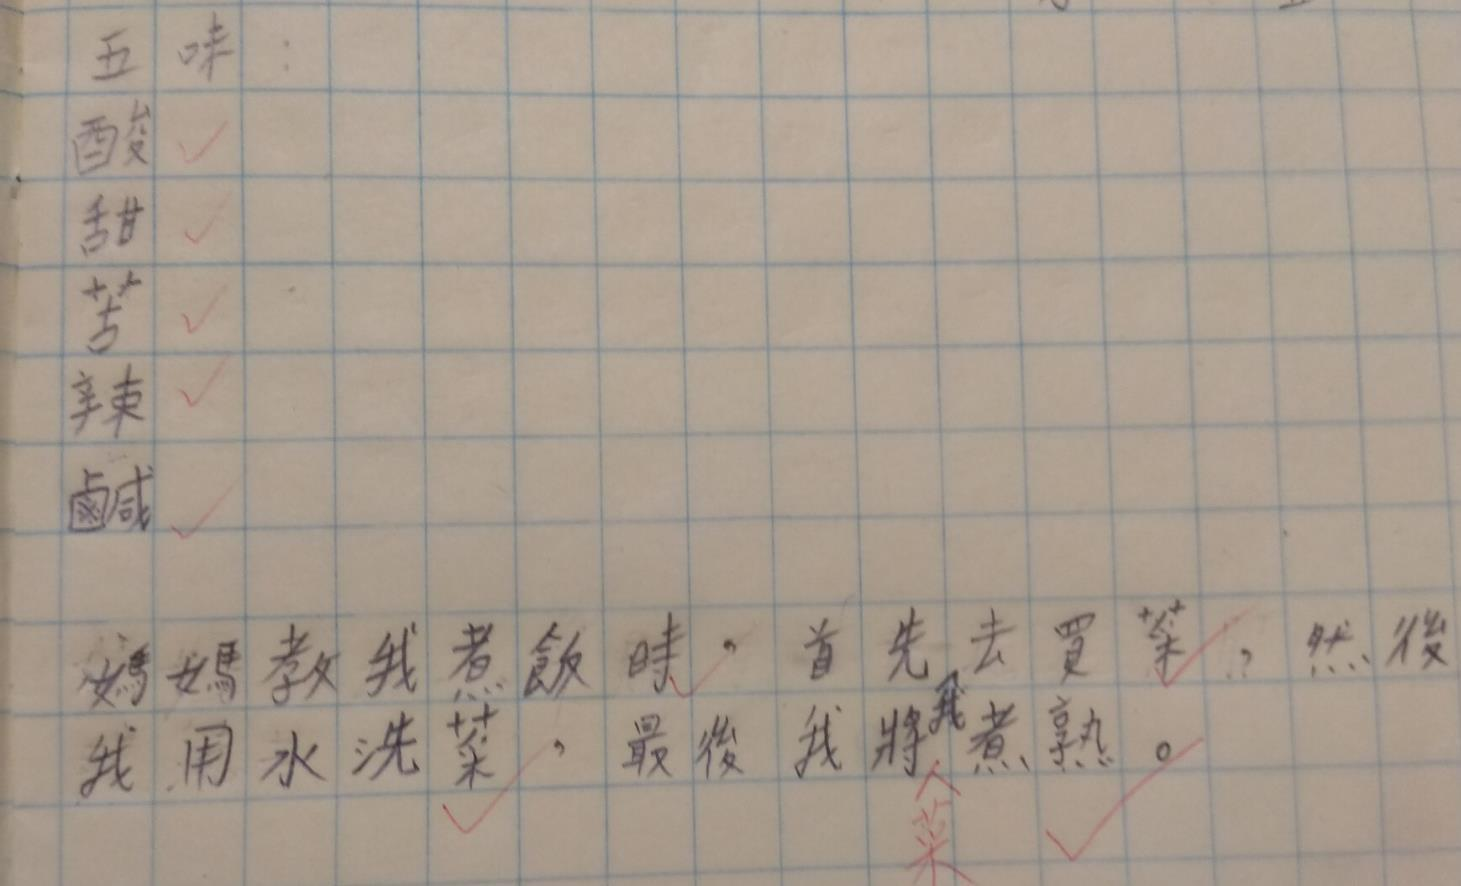 五味:
酸
甜
苦
辣
鹹
媽媽教我煮飯時,首先去買菜,然後
我用水洗菜,最後我將我煮熟。
菜